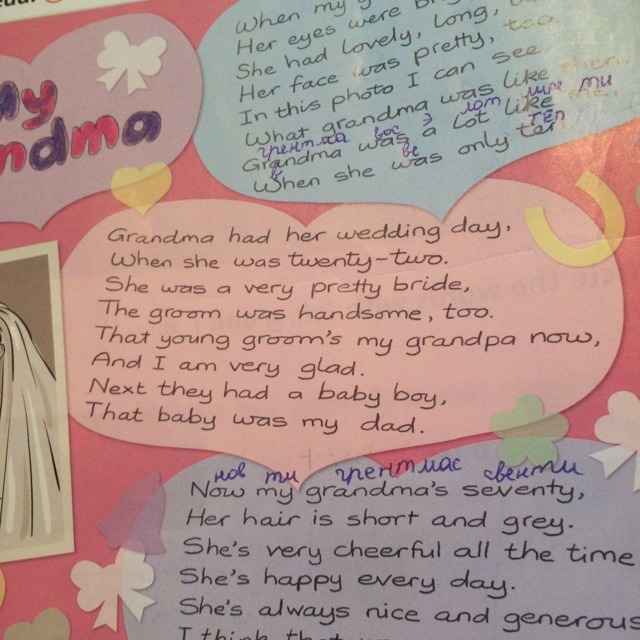 My
Grandma
When my
Her eyes were
She had lovely, long,
Her face was pretty, too.
In this photo I can see
What grandma was like then.
грентма вос э лот лик ми
Grandma was a lot like
тен
When she was only ten
Grandma had her wedding day,
When she was twenty-two.
She was a very pretty bride,
The groom was handsome, too.
That young groom's my grandpa now,
And I am very glad.
Next they had a baby boy,
That baby was my dad.
нов ти грентмас свенти
Now my grandma's seventy,
Her hair is short and grey.
She's very cheerful all the time
She's happy every day.
She's always nice and generous
I think that